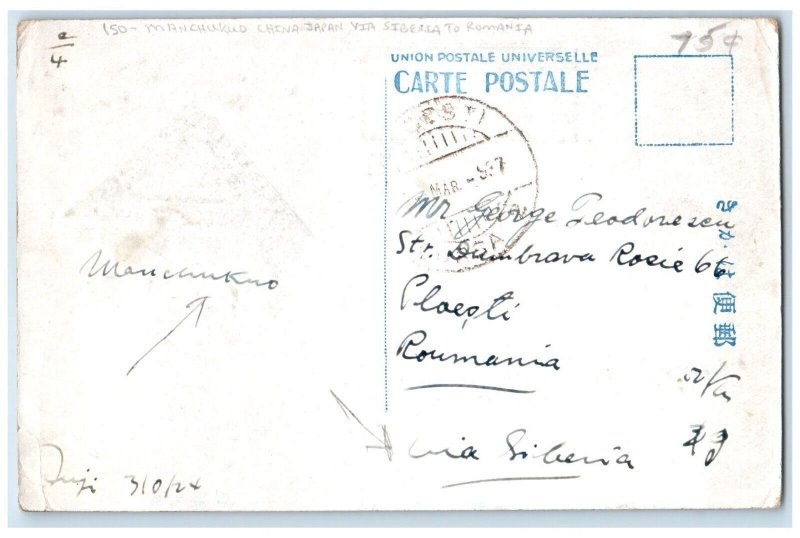 150- MANCHUKUO CHINA JAPAN VIA SIBERIA TO ROMANIA
e/4
75¢
UNION POSTALE UNIVERSELLE
CARTE POSTALE
ESTI
MAR. - 937
Mr George Teodorescu
Str. Dumbrava Rosie 66
Ploești
Roumania
via Siberia
きがは便郵
Manchukuo
310/24